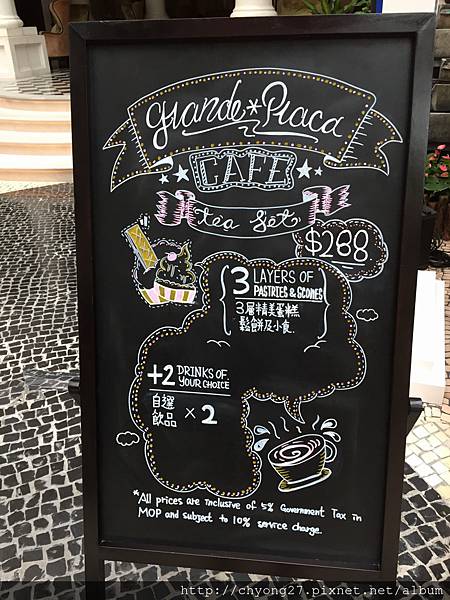 Grande * Praca
CAFE
tea set
$288
3 LAYERS OF
PASTRIES & SCONES
3層精美蛋糕
鬆餅及小食
+2 DRINKS OF
YOUR CHOICE
自選
飲品 × 2
*All prices are inclusive of 5% Government Tax in
MOP and subject to 10% service charge.
http://chyong27.pixnet.net/album